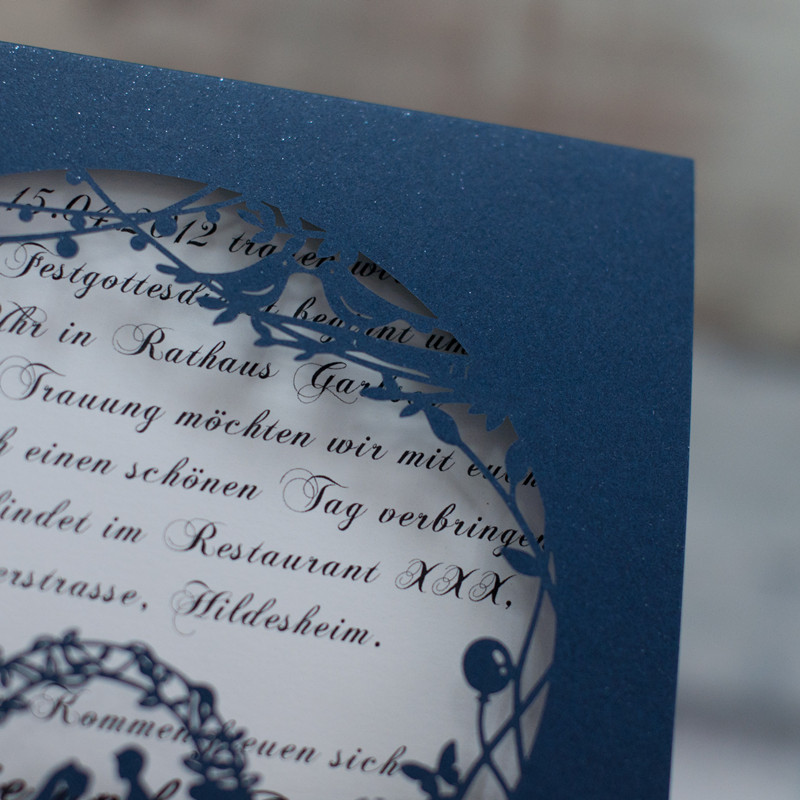 15.04.2012 trauen wir
Festgottesdienst beginnt um
Uhr in Rathaus
Trauung möchten wir mit euch
einen schönen Tag verbringen
findet im Restaurant XXX,
erstrasse, Hildesheim.
Kommen freuen sich